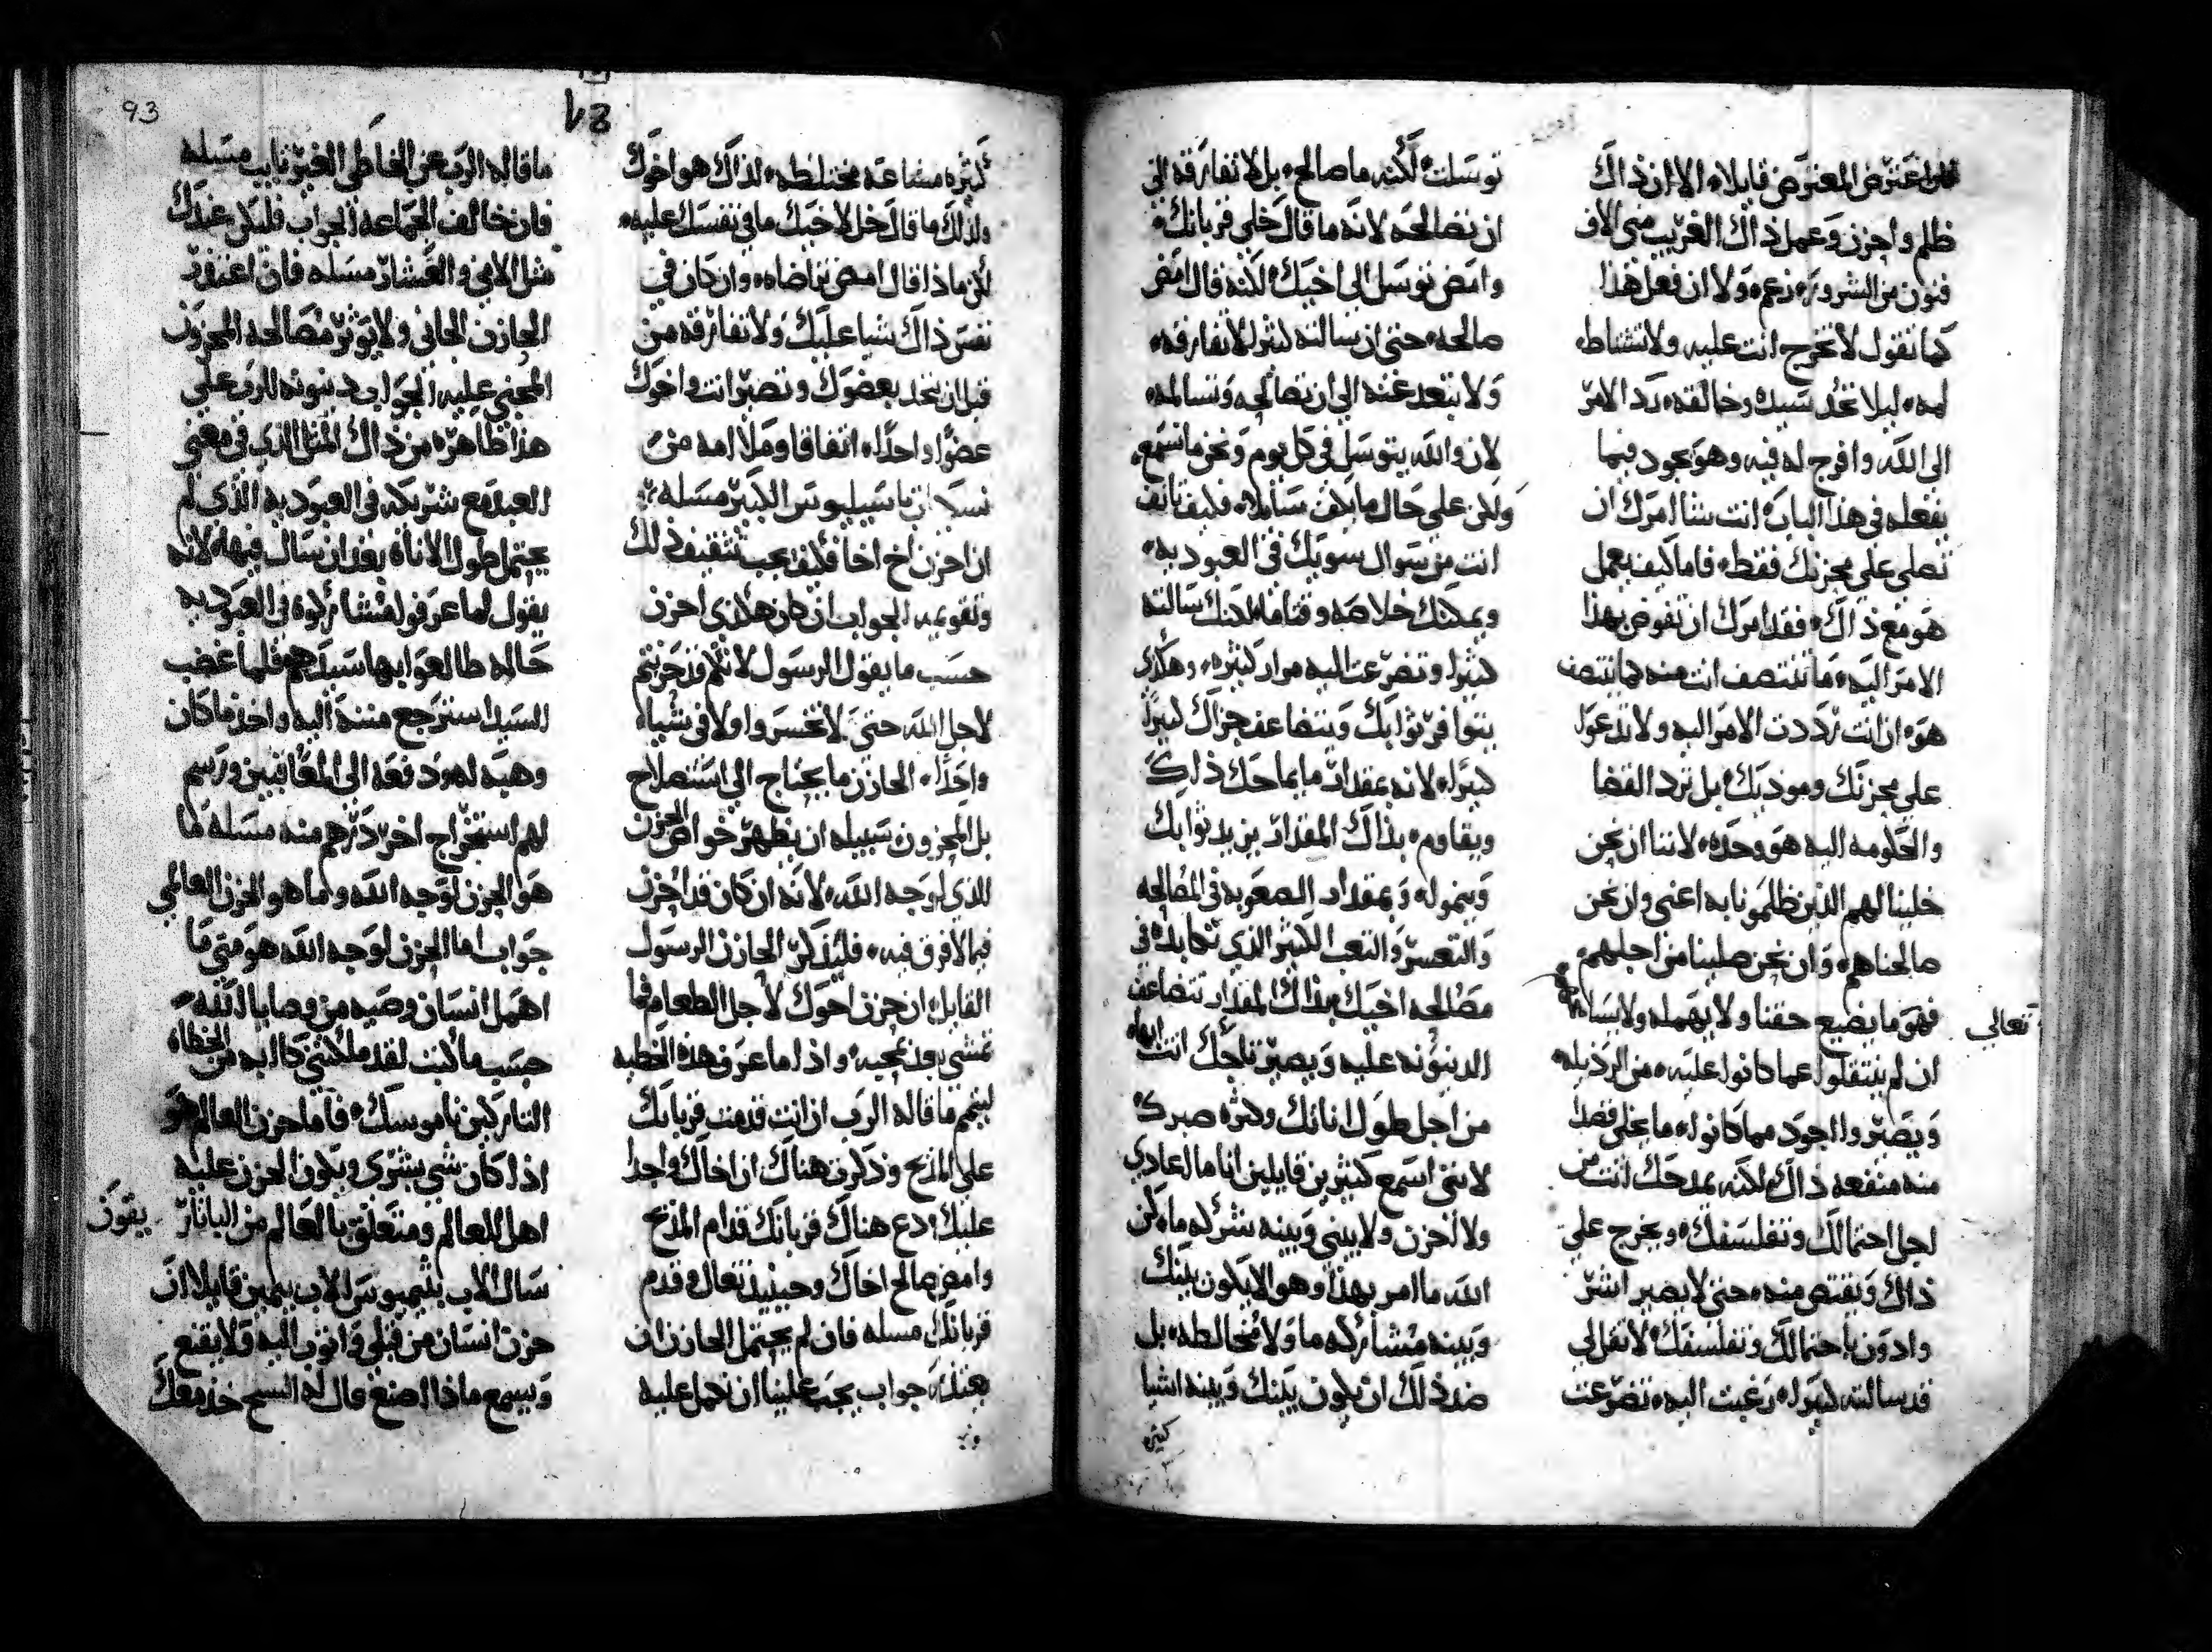 اعترض المعترض قايلا الا ان ذاك
ظلم واحزن وعمل ذاك الغريب متى الاف
فنون من الشرور زعم ولا ان فعل هذا
كما تقول لا تخرج انت عليه ولا تتشاط
لمه ليلا تخد سيده وخالقه رد الامر
الى الله وافرح له فيه وهو يجود فيما
يفعله في هذا الباب انت شا امرك ان
تصلي على محزنك فقط فاما كيف يعمل
هو مع ذاك فقد امرك ان تفوض بهذا
الامر اليه ما تنتصف انت منه كما ينتصف
هو ان انت رددت الامر اليه ولا تدعو
على محزنك وموذيك بل ترد القضا
والحكومه اليه هو وحده لاننا ان نحن
خلينا لهم الذين ظلمونا به اعني وان نحن
صالحناهم وان نحن صلينا من اجلهم
فهو ما يضيع حقنا ولا يهمله ولا
تعالى
ان لم ينتقلوا عما كانوا عليه من الرذيله
ويصيروا اجود مما كانوا ما يخلي فقدا
منه منفعه ذاك لكنه يمدحك انت من
اجل احتمالك وتفلسفك ويخرج على
ذاك ويقتص منه حتى لا يصير اشر
وادون باحتمالك وتفلسفك لا تقل لي
قد سالته كثيرا رغبت اليه تضرعت
توسلت لكنه ما صالح بل لا تفارقه الى
ان تصالحه لانه ما قال خلي قربانك
وامض توسل الى اخيك لكنه قال امض
صالحه حتى ان سالته كثير لا تفارقه
ولا تبعد عنه الى ان تصالحه وتسالمه
لان والله يتوسل في كل يوم ونحن ما نسمع
ولكن على حال ما يكف سايلا فكيف تانف
انت من سوال سويك في العبوديه
ويمكنك خلاصه وقتا ما لكنك سالته
كثيرا وتضرعت اليه مرار كثيره وهكذي
يتوافر ثوابك ويتضاعف جزاك كبيرا
كبيرا لانه بمقدار ما يماحك ذلك
ويقاوم بذاك المقدار يزيد ثوابك
وينمو له وبمقدار الصعوبه في المصالحه
والتعسر والتعب الكثير الذي تكابده في
مصالحه اخيك بذاك المقدار تتضاعف
الدينونه عليه ويصير تاجك انت ابها
من اجل طول اناتك وكثره صبرك
لانني اسمع كثيرين قايلين انا ما العادي
ولا لحزن ولا بيني وبينه شركه ما لكن
الله ما امر بهذا وهو الا يكون بينك
وبينه مشاركه ما ولا مخالطه بل
ضد ذلك ان يكون بينك وبينه اشيا
كثيره
93
كثيره مشاعه مختلطه لذاك هو اخوك
ولذلك ما قال خل لاخيك ما في نفسك عليه
لكن ماذا قال امض تراضاه وان كان في
نفس ذاك شيا عليك ولا تفارقه من
قبل ان تخد بعضوك وتصير انت واخوك
عضوا واحدا اتفاقا وملاامه متى
باسيليوس الكبير مسله
ان احزن اخ اخا فكيف يجب تثقيف ذلك
وتقويمه الجواب ان كان هكذي احزن
حسب ما يقول الرسول لانكم قد حزنتم
لاجل الله حتى لا تخسروا ولا في شيا
واحدا الحازن ما يحتاج الى استصلاح
بل المحزون سبيله ان يظهر خواص الحزن
الذي لوجه الله لانه ان كان قد احزن
فيما لا فرق فيه فليذكر الحازن الرسول
القايل ان حزن اخوك لاجل الطعام فما
تمشي بعد بمحبه واذا ما عرف هذه الخطيه
ليتمم ما قاله الرب ان انت قدمت قربانك
على المذبح وذكرت هناك ان اخاك واجدا
عليك دع هناك قربانك قدام المذبح
وامض صالح اخاك وحينيذ تعال وقدم
قربانك مسله فان لم يحتمل الحازن ان
يعتذر جواب يجب علينا ان نعمل عليه
ما قاله الرب عن الخاطي الغير تايب مسله
فان خالف الجماعه الجواب فليكن عندك
مثل الاممي والعشار مسله فان اعتذر
الحازن الجاني ولا يوثر مصالحه المحزون
المجني عليه الجواب دينونه للرب على
هذا ظاهره من ذاك المثل الذي في معنى
العبد مع شريكه في العبوديه الذي لم
يحتمل طول الاناه بعد ان سال فيها لانه
يقول لما عرفوا مشاركوه في العبوديه
حاله طالعوا بها سيدهم فلما غضب
السيد استرجع منته اليه واخذ ما كان
وهبه له ودفعه الى المعاقبين ورسم
لهم استخراج اخر درهم منه مسله ما
هو الحزن لوجه الله وما هو الحزن العالمي
جواب اما الحزن لوجه الله هو متى ما
اهمل انسان وصيه من وصايا الله
حسب ما كتب لقد ملكتني كابه من الخطاه
التاركين ناموسك فاما حزن العالم هو
اذا كان شي بشري ويكون الحزن عليه
اهل للعالم ومتعلق بالعالم من الباتار يقون
سال الاب بيمين قايلا ان
حزن انسان من قبلي واتوب اليه ولا يقنع
ويسمع ماذا اصنع قال له الشيخ خذ معك